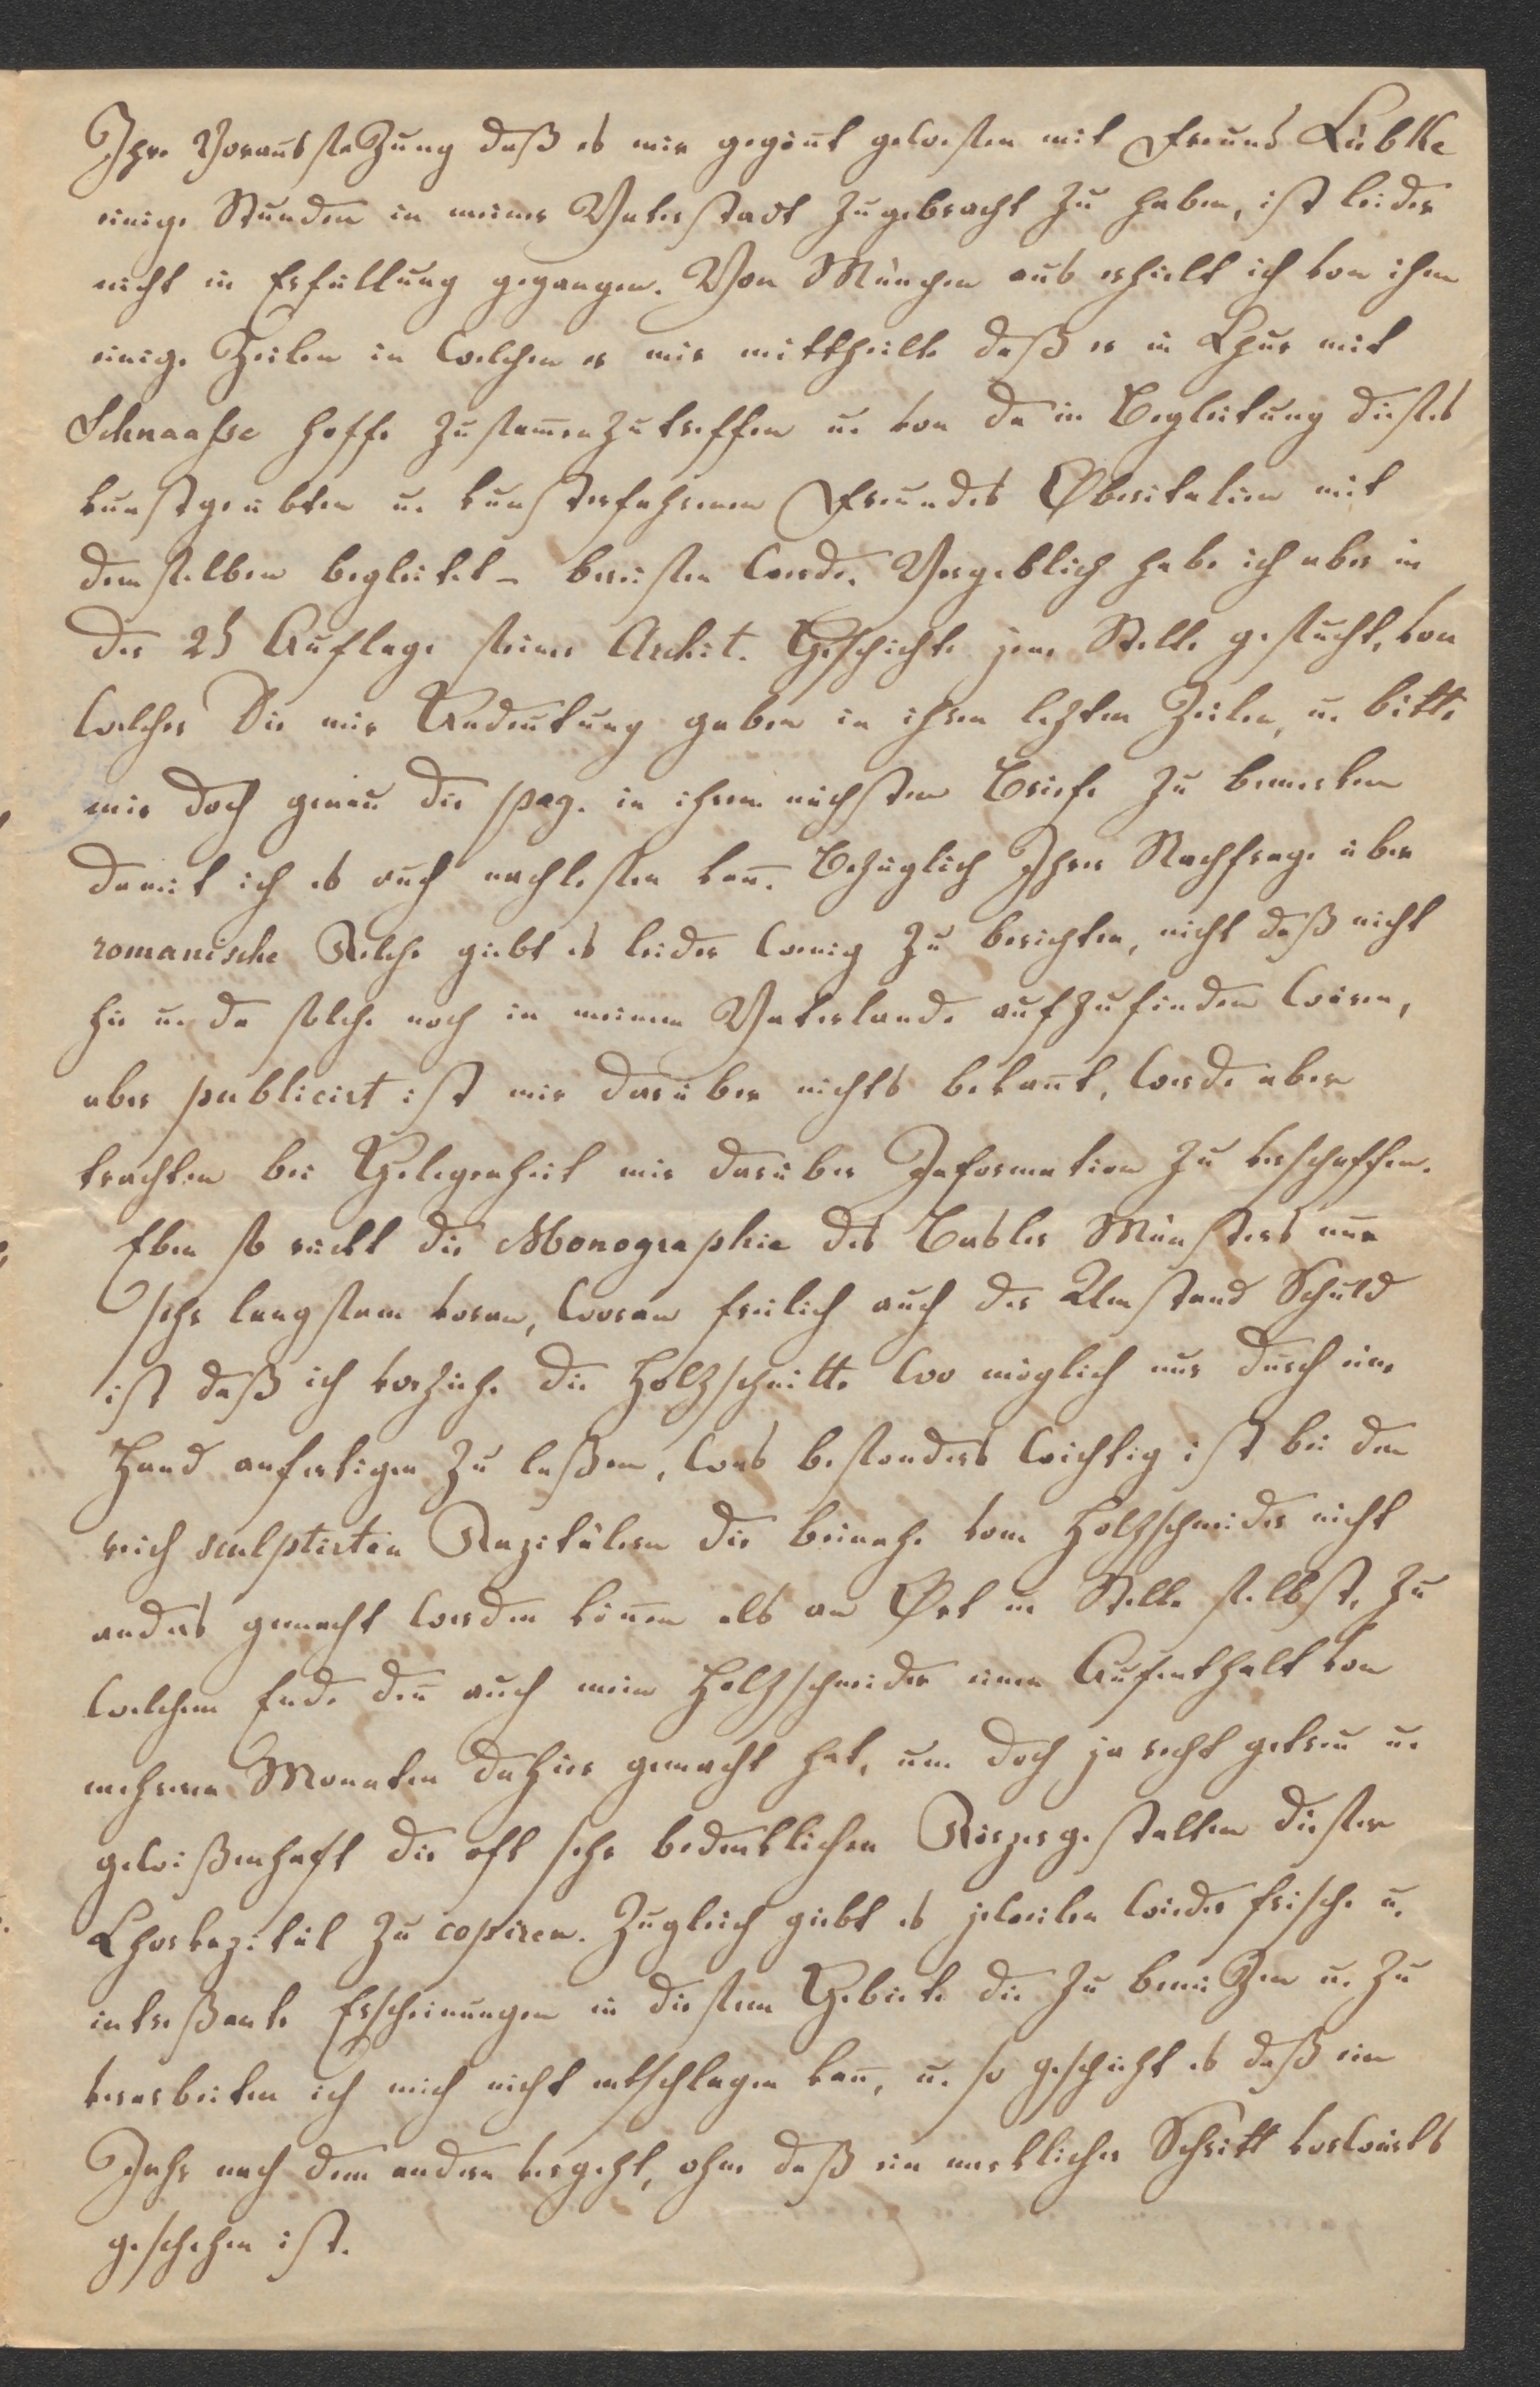 Ihre Voraussetzung daß es mir gegönt gewesen mit Freund Lübke
einige Stunden in meiner Vaterstadt zugebracht zu haben, ist leider
nicht in Erfüllung gegangen. Von München aus erhielt ich von ihm
einige Zeilen in welchen er mir mittheilte daß er in Chur mit
Schnaasse hoffe zusam̄enzutreffen u. von da in Begleitung dieses
kunstgeübten u. kunsterfahrenen Freundes Oberitalien mit
demselben begleitet – bereisen werde. Vergeblich habe ich aber in
der 2t Auflage seiner Archit. Geschichte jene Stelle gesucht, von
welcher Sie mir Andeutung gaben in ihren lezten Zeilen, u. bitte
mir doch genau die pag. in ihrem nächsten Briefe zu bemerken
damit ich es auch nachlesen kan̄. Bezüglich Ihrer Nachfrage über
romanische Kelche giebt es leider wenig zu berichten, nicht daß nicht
hie u. da solche noch in meinem Vaterlande aufzufinden wären,
aber publicirt ist mir darüber nichts bekan̄t, werde aber
trachten bei Gelegenheit mir darüber Information zu verschaffen.
Eben so rückt die Monographie des Basler Münsters nur
sehr langsam voran, woran freilich auch der Umstand Schuld
ist daß ich vorziehe die Holzschnitte wo möglich nur durch eine
Hand anfertigen zu laßen, was besonders wichtig ist bei den
reich sculptirten Kapitälern die beinahe vom Holzschneider nicht
anders gemacht werden kön̄en als an Ort u. Stelle selbst, zu
welchem Ende den̄ auch mein Holzschneider einen Aufenthalt von
mehreren Monaten dahier gemacht hat, um doch ja recht getreu u.
gewißenhaft die oft sehr bedenklichen Körpergestalten dieser
Chorkapitäl zu copiren. Zugleich giebt es jeweilen wieder frische u.
intreßante Erscheinungen in diesem Gebiete die zu benützen u. zu
verarbeiten ich mich nicht entschlagen kan̄, u. so geschieht es daß ein
Jahr nach dem andern vergeht, ohne daß ein merklicher Schritt vorwärts
geschehen ist.